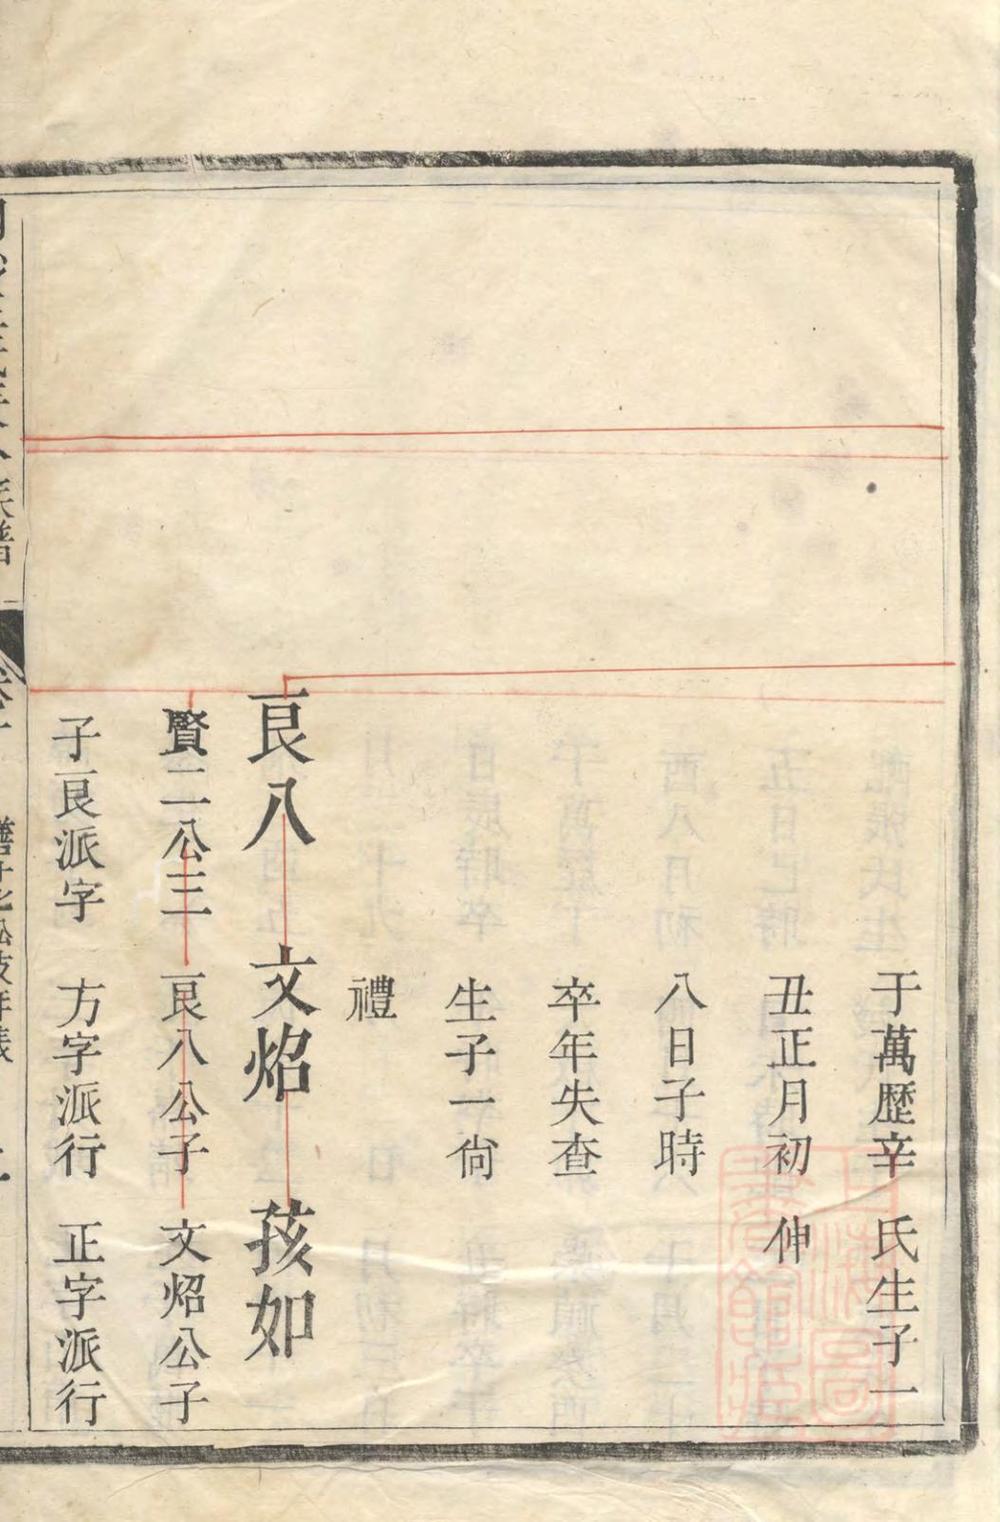 于萬歷辛 氏生子一
丑正月初 伸
八日子時
卒年失查
生子一尙
禮
良八 文炤 孩如
賢二公三 良八公子 文炤公子
子良派字 方字派行 正字派行
上海圖
書館藏